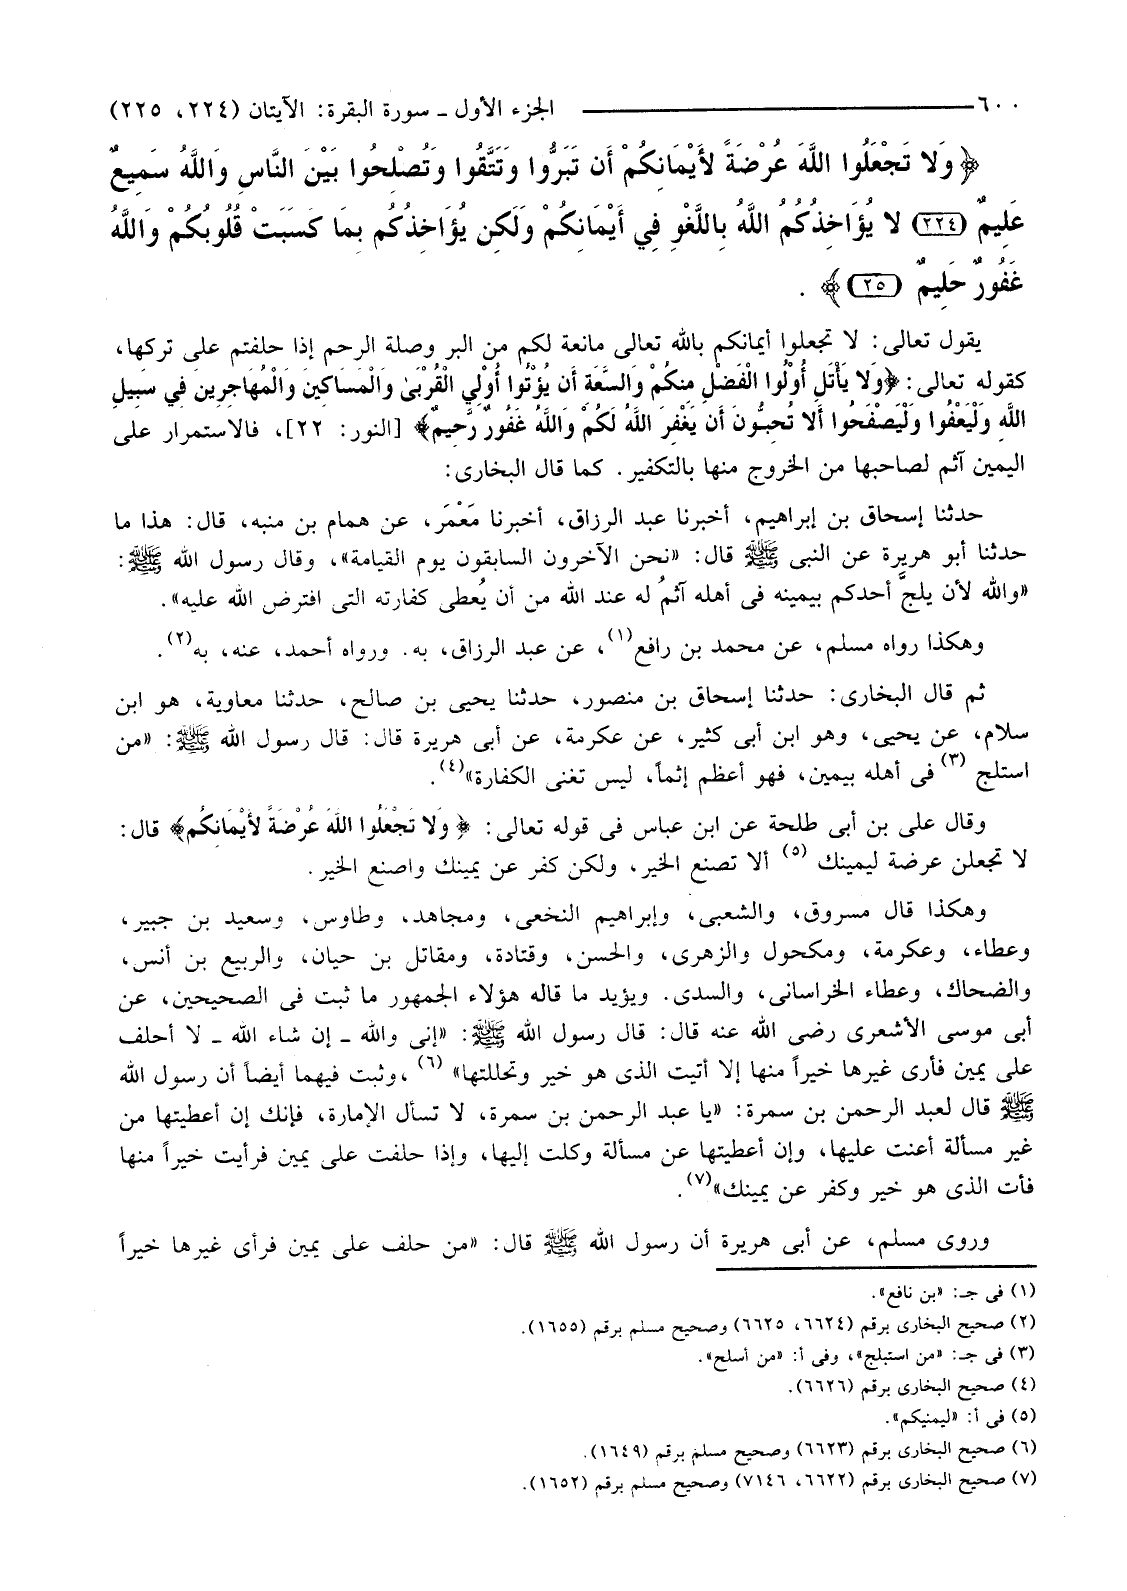 ٦٠٠ الجزء الأول ـ سورة البقرة: الآيتان (٢٢٤، ٢٢٥)
﴿ وَلا تَجْعَلُوا اللَّهَ عُرْضَةً لأَيْمَانِكُمْ أَن تَبَرُّوا وَتَتَّقُوا وَتُصْلِحُوا بَيْنَ النَّاسِ وَاللَّهُ سَمِيعٌ
عَلِيمٌ (٢٢٤) لا يُؤَاخِذُكُمُ اللَّهُ بِاللَّغْوِ فِي أَيْمَانِكُمْ وَلَكِن يُؤَاخِذُكُم بِمَا كَسَبَتْ قُلُوبُكُمْ وَاللَّهُ
غَفُورٌ حَلِيمٌ (٢٥) ﴾ .
يقول تعالى: لا تجعلوا أيمانكم بالله تعالى مانعة لكم من البر وصلة الرحم إذا حلفتم على تركها،
كقوله تعالى: ﴿وَلا يَأْتَلِ أُولُوا الْفَضْلِ مِنكُمْ وَالسَّعَةِ أَن يُؤْتُوا أُولِي الْقُرْبَىٰ وَالْمَسَاكِينَ وَالْمُهَاجِرِينَ فِي سَبِيلِ
اللَّهِ وَلْيَعْفُوا وَلْيَصْفَحُوا أَلا تُحِبُّونَ أَن يَغْفِرَ اللَّهُ لَكُمْ وَاللَّهُ غَفُورٌ رَّحِيمٌ﴾ [النور: ٢٢]، فالاستمرار على
اليمين آثم لصاحبها من الخروج منها بالتكفير. كما قال البخارى:
حدثنا إسحاق بن إبراهيم، أخبرنا عبد الرزاق، أخبرنا مَعْمَر، عن همام بن منبه، قال: هذا ما
حدثنا أبو هريرة عن النبى ﷺ قال: «نحن الآخرون السابقون يوم القيامة»، وقال رسول الله ﷺ:
«والله لأن يلجَّ أحدكم بيمينه فى أهله آثمُ له عند الله من أن يُعطى كفارته التى افترض الله عليه».
وهكذا رواه مسلم، عن محمد بن رافع(١)، عن عبد الرزاق، به. ورواه أحمد، عنه، به(٢).
ثم قال البخارى: حدثنا إسحاق بن منصور، حدثنا يحيى بن صالح، حدثنا معاوية، هو ابن
سلام، عن يحيى، وهو ابن أبى كثير، عن عكرمة، عن أبى هريرة قال: قال رسول الله ﷺ: «من
استلج (٣) فى أهله بيمين، فهو أعظم إثماً، ليس تغنى الكفارة»(٤).
وقال على بن أبى طلحة عن ابن عباس فى قوله تعالى: ﴿ وَلا تَجْعَلُوا اللَّهَ عُرْضَةً لأَيْمَانِكُم﴾ قال:
لا تجعلن عرضة ليمينك (٥) ألا تصنع الخير، ولكن كفر عن يمينك واصنع الخير.
وهكذا قال مسروق، والشعبى، وإبراهيم النخعى، ومجاهد، وطاوس، وسعيد بن جبير،
وعطاء، وعكرمة، ومكحول والزهرى، والحسن، وقتادة، ومقاتل بن حيان، والربيع بن أنس،
والضحاك، وعطاء الخراسانى، والسدى. ويؤيد ما قاله هؤلاء الجمهور ما ثبت فى الصحيحين، عن
أبى موسى الأشعرى رضى الله عنه قال: قال رسول الله ﷺ: «إنى والله ـ إن شاء الله ـ لا أحلف
على يمين فأرى غيرها خيراً منها إلا أتيت الذى هو خير وتحللتها» (٦) ،وثبت فيهما أيضاً أن رسول الله
ﷺ قال لعبد الرحمن بن سمرة: «يا عبد الرحمن بن سمرة، لا تسأل الإمارة، فإنك إن أعطيتها من
غير مسألة أعنت عليها، وإن أعطيتها عن مسألة وكلت إليها، وإذا حلفت على يمين فرأيت خيراً منها
فأت الذى هو خير وكفر عن يمينك»(٧).
وروى مسلم، عن أبى هريرة أن رسول الله ﷺ قال: «من حلف على يمين فرأى غيرها خيراً
(١) فى جـ: «بن نافع».
(٢) صحيح البخارى برقم (٦٦٢٤، ٦٦٢٥) وصحيح مسلم برقم (١٦٥٥).
(٣) فى جـ: «من استبلج»، وفى أ: «من أسلح».
(٤) صحيح البخارى برقم (٦٦٢٦).
(٥) فى أ: «ليمنيكم».
(٦) صحيح البخارى برقم (٦٦٢٣) وصحيح مسلم برقم (١٦٤٩).
(٧) صحيح البخارى برقم (٦٦٢٢، ٧١٤٦) وصحيح مسلم برقم (١٦٥٢).